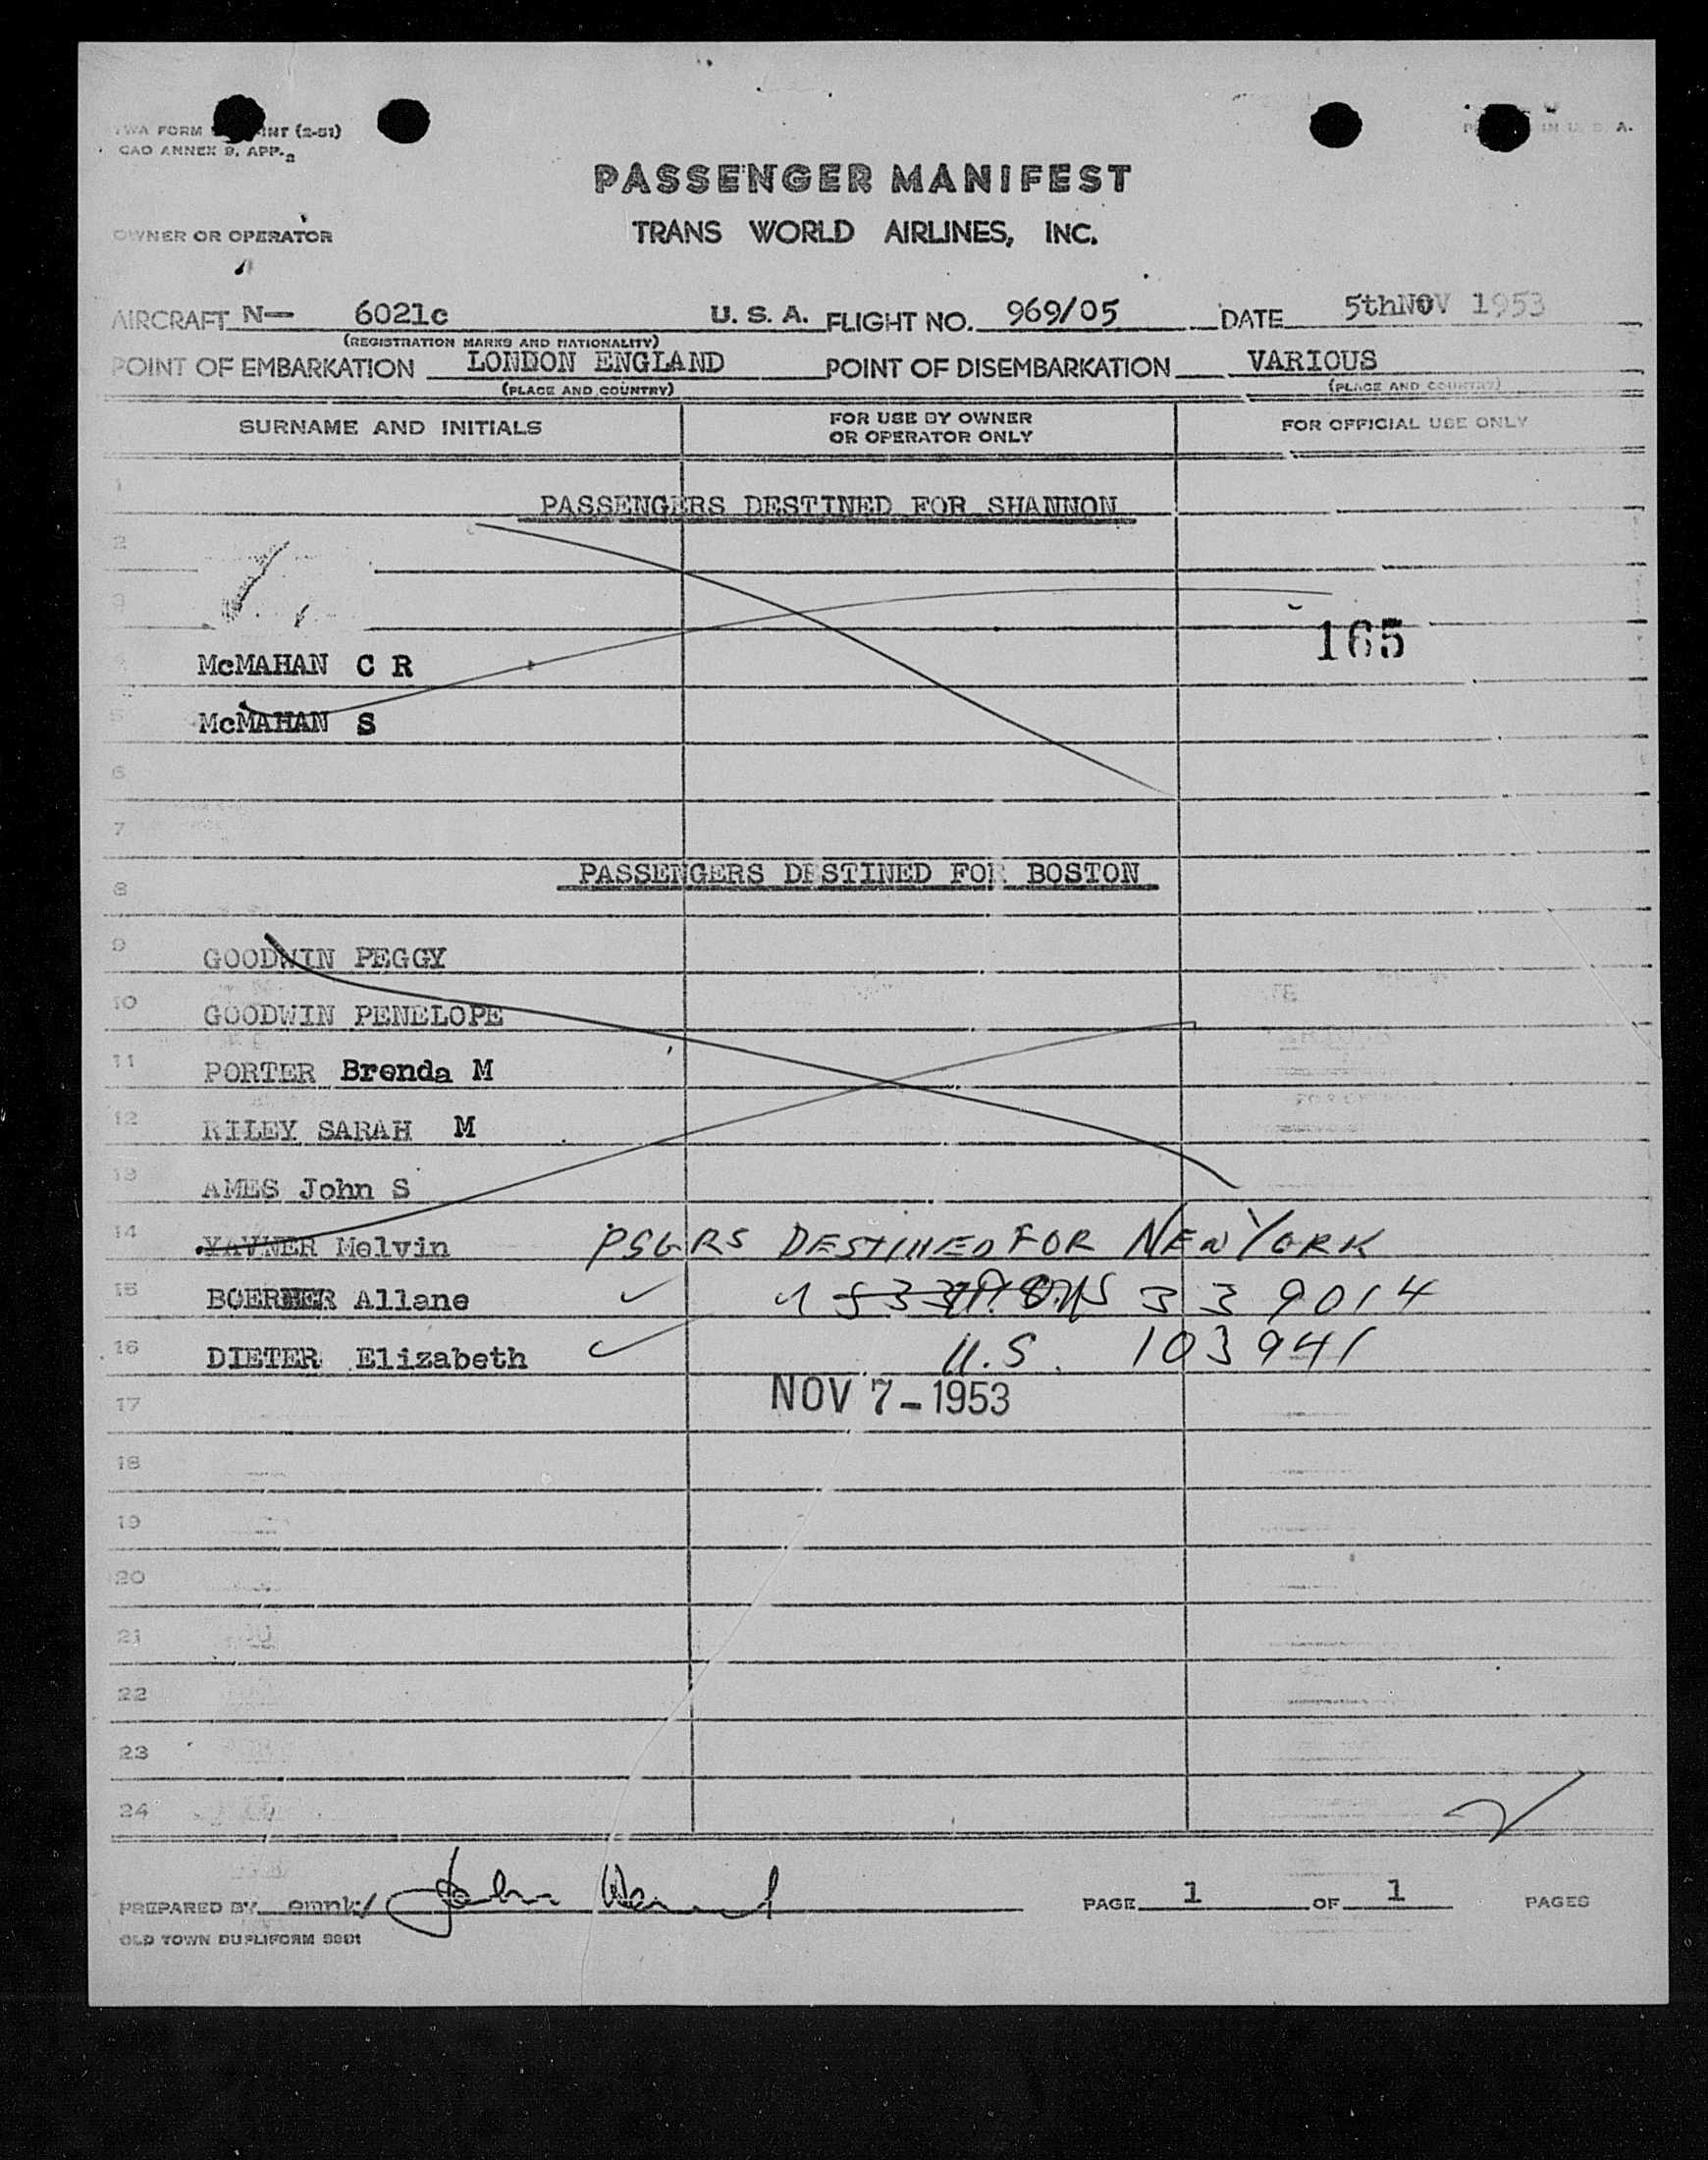 TWA FORM INT (2-51)
CAO ANNEX 9, APP. 2
IN U. S. A.
PASSENGER MANIFEST
OWNER OR OPERATOR TRANS WORLD AIRLINES, INC.
AIRCRAFT N— 6021c U. S. A. FLIGHT NO. 969/05 DATE 5thNOV 1953
(REGISTRATION MARKS AND NATIONALITY)
POINT OF EMBARKATION LONDON ENGLAND POINT OF DISEMBARKATION VARIOUS
(PLACE AND COUNTRY) (PLACE AND COUNTRY)
SURNAME AND INITIALS FOR USE BY OWNER OR OPERATOR ONLY FOR OFFICIAL USE ONLY
1 PASSENGERS DESTINED FOR SHANNON
2
3
165
4 McMAHAN C R
5 McMAHAN S
6
7
8 PASSENGERS DESTINED FOR BOSTON
9 GOODWIN PEGGY
10 GOODWIN PENELOPE
11 PORTER Brenda M
12 RILEY SARAH M
13 AMES John S
14 YAVNER Melvin PSGRS DESTINED FOR NEW YORK
15 BOERNER Allane 339014
16 DIETER Elizabeth U.S. 103941
17 NOV 7-1953
18
19
20
21
22
23
24
PREPARED BY emnk/ PAGE 1 OF 1 PAGES
OLD TOWN DUPLIFORM